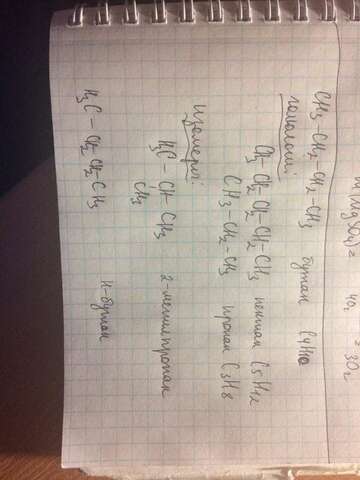 CH3-CH2-CH2-CH3 бутан C4H10
гомологи:
CH3-CH2-CH2-CH2-CH3 пентан C5H12
CH3-CH2-CH3 пропан C3H8
изомеры:
H3C-CH-CH3 2-метилпропан
CH3
H3C-CH2CH2CH3 н-бутан